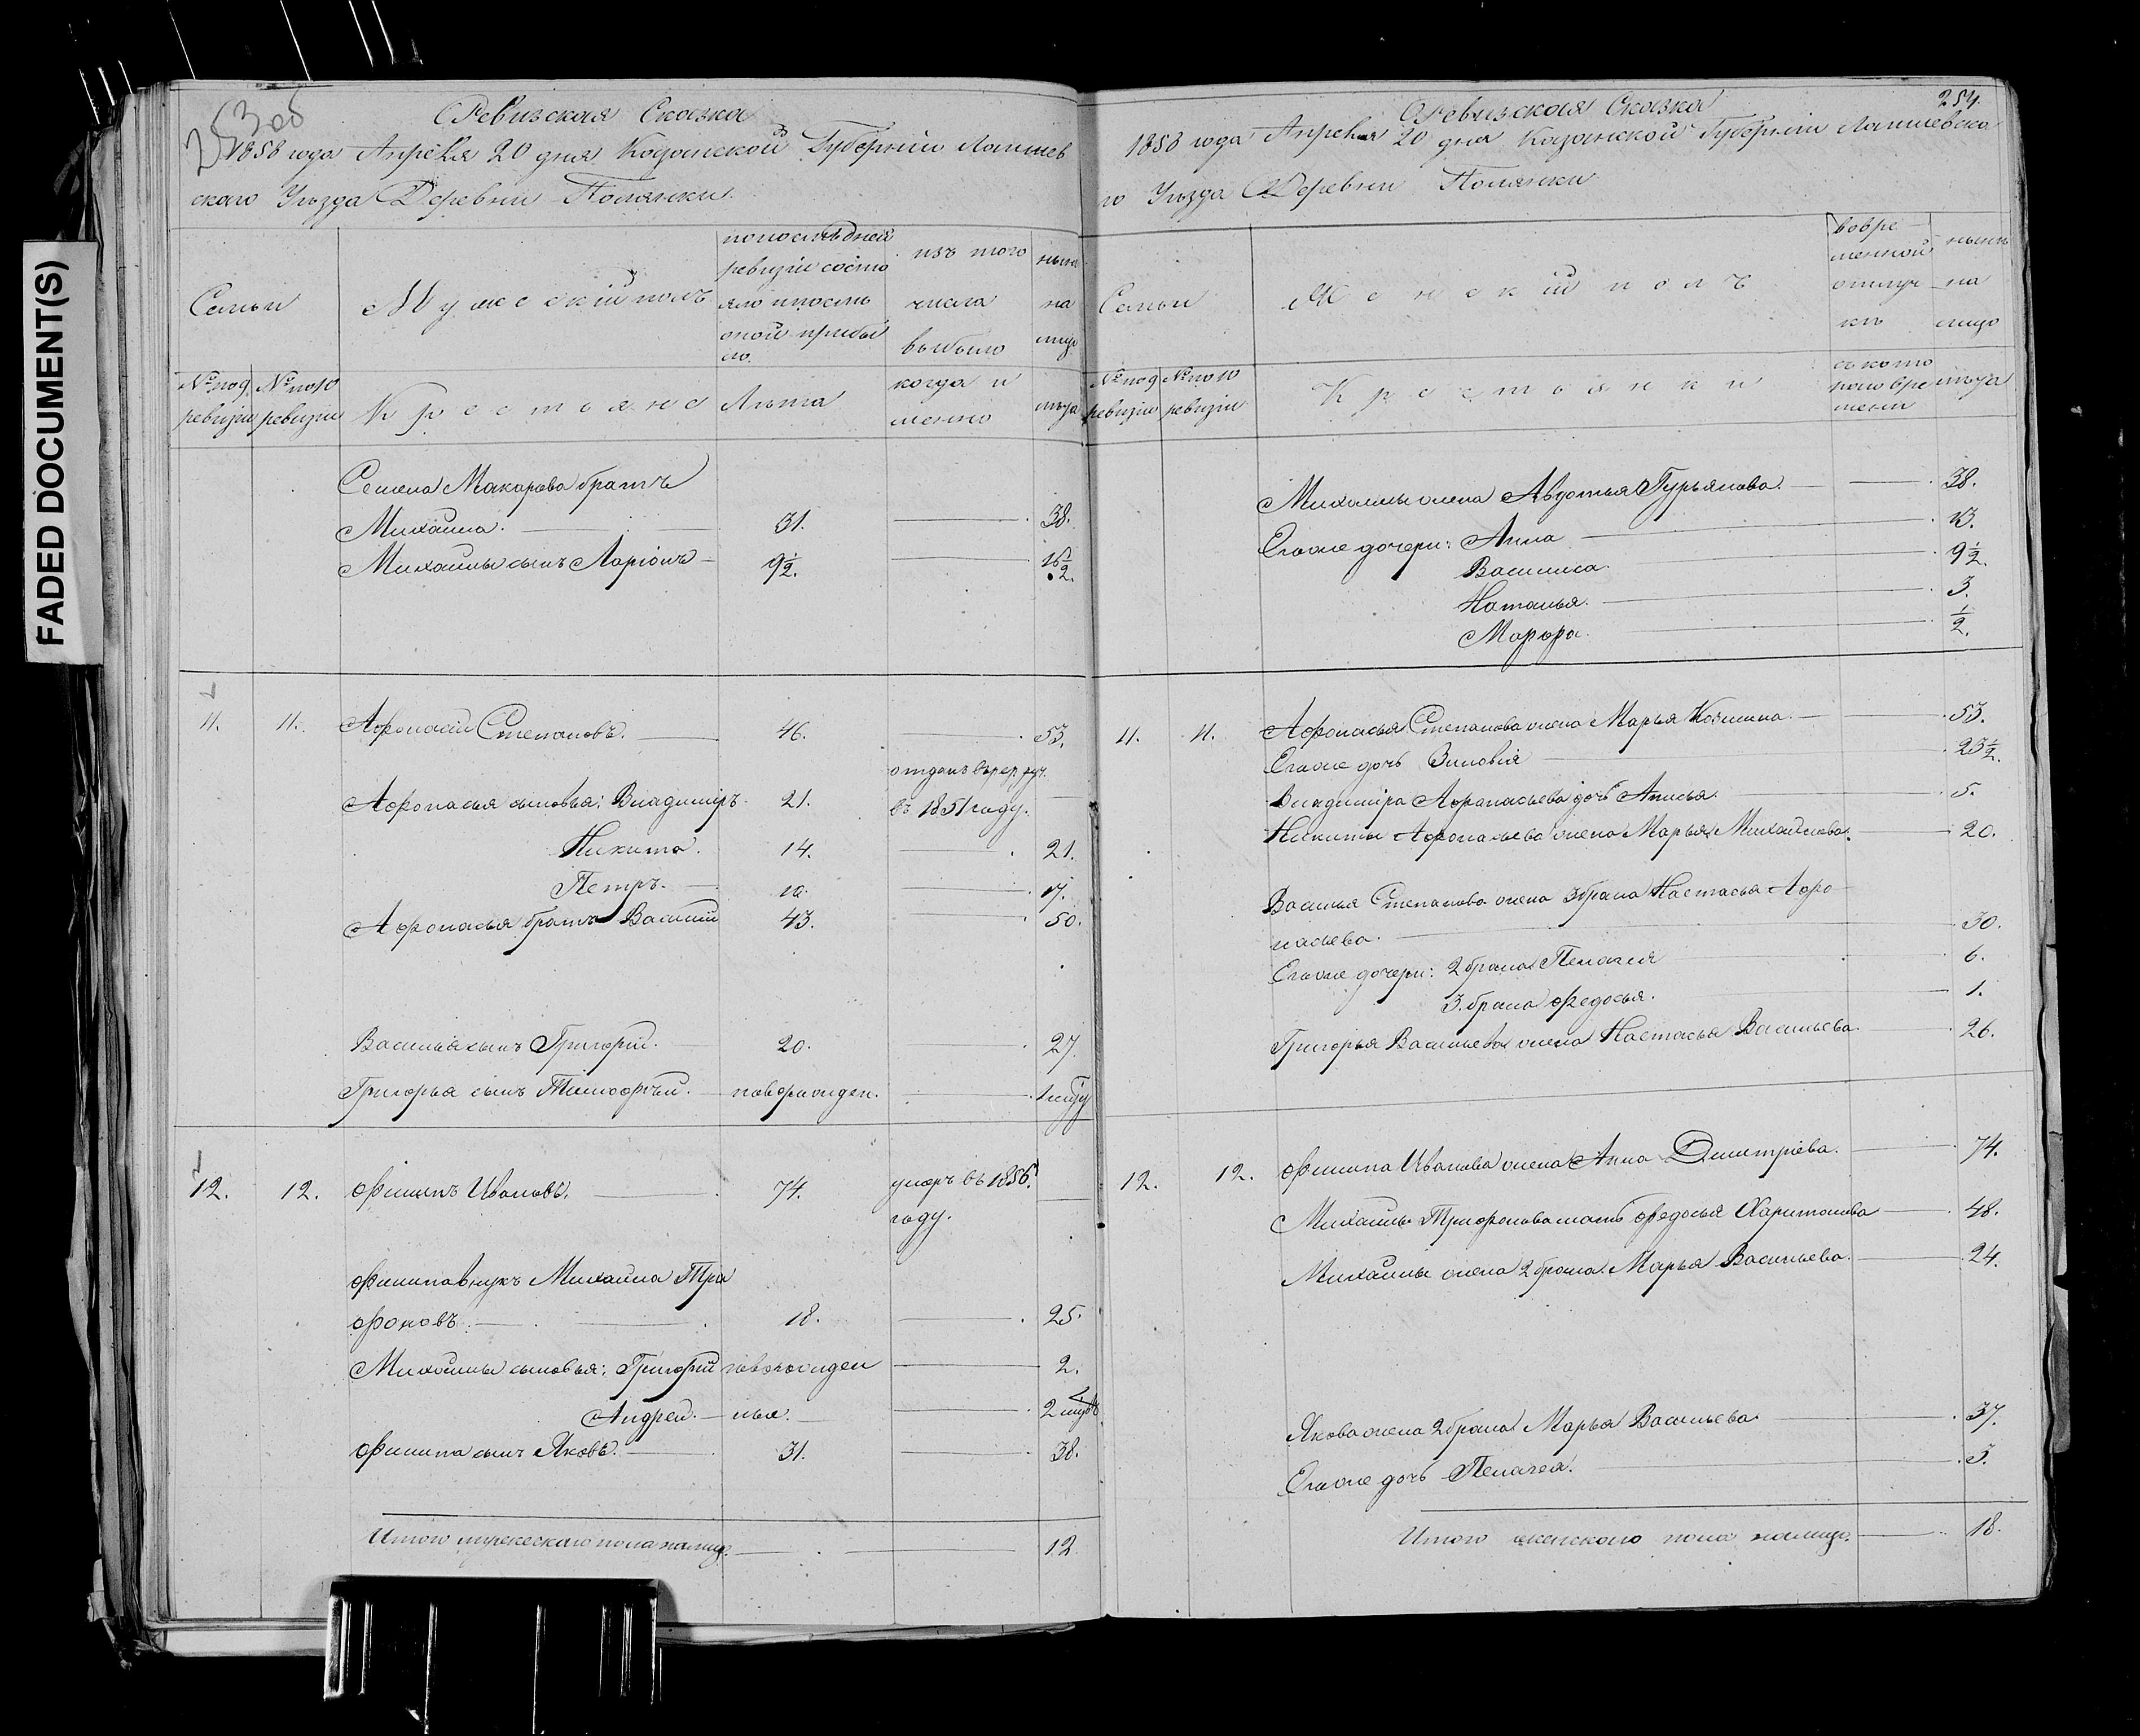 FADED DOCUMENT(S)
253 об
Ревизская Сказка
1858 года Апреля 20 дня Казанской Губернии Лаишев
скаго Уезда Деревни Полянки.
Семьи
Мужескій полъ
попоследней
ревизіи состо
яло и после
оной прибы
ло.
изъ того
числа
выбыло
ныне
на
лицо
№ по 9
ревизіи
№ по 10
ревизіи
Крестьяне
Лета
когда и
менно
лета
Семена Макарова братъ
Михайла. 31. 38.
Михайлы сынъ Ларіонъ 9½. 16½.
11. 11. Афонасій Степановъ. 46. 53.
Афонасья сыновья: Владиміръ. 21. отданъ врекруч.
въ 1851 году.
Никита. 14. 21.
Петръ. 10. 17.
Афонасья братъ Василій 43. 50.
Василья сынъ Григорій. 20. 27.
Григорья сынъ Тимофей. новорожден. 1 году
12. 12. Филипъ Ивановъ. 74. умеръ въ 1856.
году.
Филипа внукъ Михайла Три
фоновъ. 18. 25.
Михайлы сыновья: Григорій новорожден 2.
Андрей. ные. 2
Филипа сынъ Яковъ. 31. 38.
Итого мужескаго пола налицо. 12.
254.
Ревизская Сказка
1858 года Апреля 20 дня Казанской Губерніи Лаишевска
го Уезда Деревни Полянки
Семьи
Женскій полъ
вовре
менной
отлуч
ке
ныне
на
лицо
№ по 9
ревизіи
№ по 10
ревизіи
Крестьянки
съ кото
раго вре
мени
лета
Михайлы жена Авдотья Гурьянова. 38.
Егоже дочери: Анна 13.
Василиса. 9½.
Наталья. 3.
Марфа. ½.
11. 11. Афонасья Степанова жена Марья Козмина. 53.
Егоже дочь Зиновія 23½.
Владиміра Афанасьева дочь Анисья. 5.
Никиты Афонасьева жена Марья Михайлова. 20.
Василья Степанова жена 3 брака Настасья Афо
насьева. 30.
Егоже дочери: 2 брака Пелагея 6.
3. брака Федосья. 1.
Григорья Васильева жена Настасья Васильева. 26.
12. 12. Филипа Иванова жена Анна Дмитріева. 74.
Михайлы Трифонова мать Федосья Харитонова 48.
Михайлы жена 2 брака. Марья Васильева. 24.
Якова жена 2 брака Марья Васильева. 37.
Егоже дочь Пелагея. 3.
Итого женскаго пола налицо. 18.